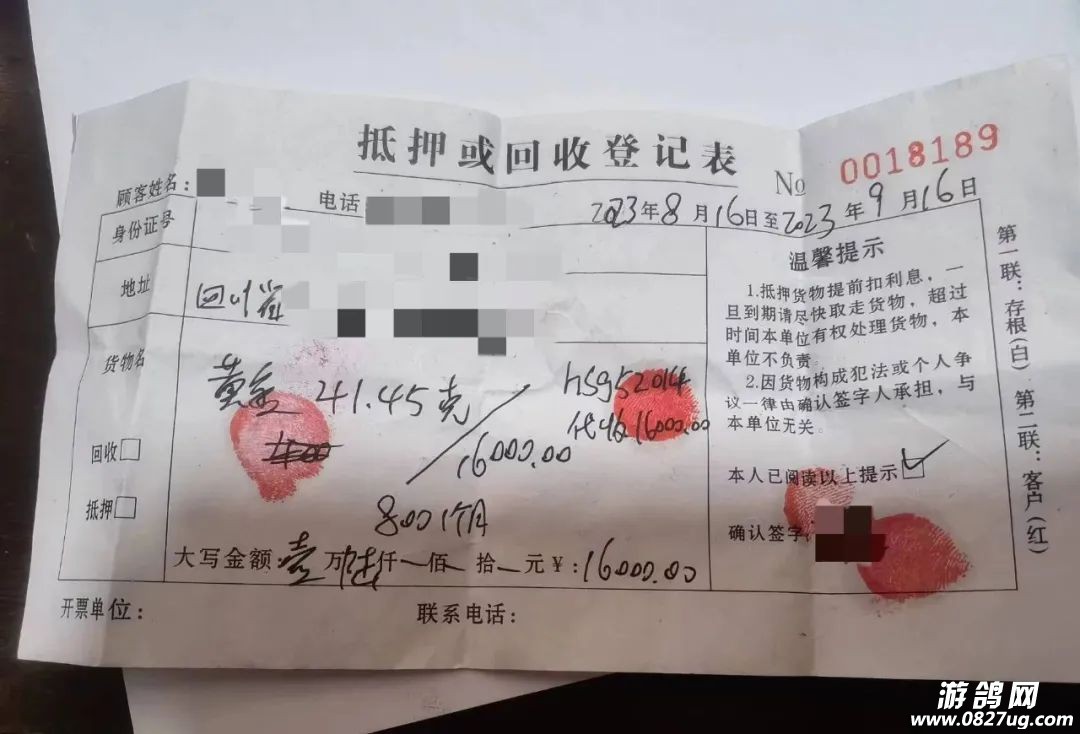 抵押或回收登记表
No 0018189
顾客姓名：
电话
2023年8月16日至2023年9月16日
身份证号
地址
四川省
货物名
黄金 41.45克
16000.00
hsg952014
代收16000.00
回收
抵押
800 1个月
大写金额：壹万陆仟 佰 拾 元￥：16000.00
温馨提示
1.抵押货物提前扣利息，一
旦到期请尽快取走货物，超过
时间本单位有权处理货物，本
单位不负责。
2.因货物构成犯法或个人争
议一律由确认签字人承担，与
本单位无关。
本人已阅读以上提示
确认签字：
第一联：存根(白) 第二联：客户(红)
开票单位：
联系电话：
游鸽网
www.0827ug.com